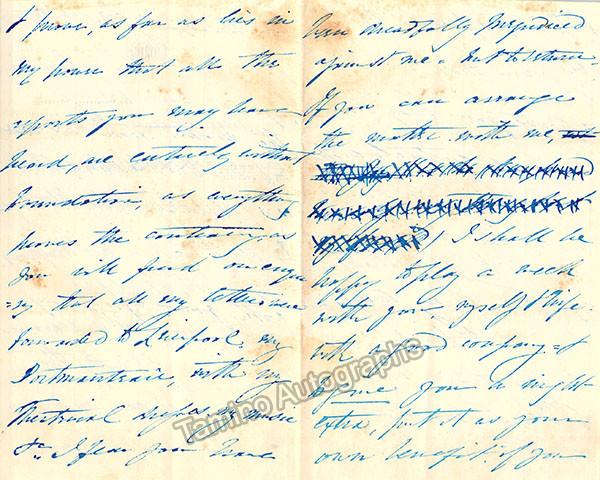 I prove, as far as lies in
my power that all the
reports you may have
heard, are entirely without
foundation, as everything
proves the contrary, as
you will find on enqui
=ry that all my letters were
forwarded to Liverpool, my
Portmanteau, with my
Theatrical dresses, & music
&c. I fear you have
been dreadfully prejudiced
against me. but to return.
If you can arrange
the matter with me,
I shall be
happy to play a week
with you, myself & Wife.
with a good company & I
give you a night
extra, put it as your
own benefit. if you
Tamino Autographs